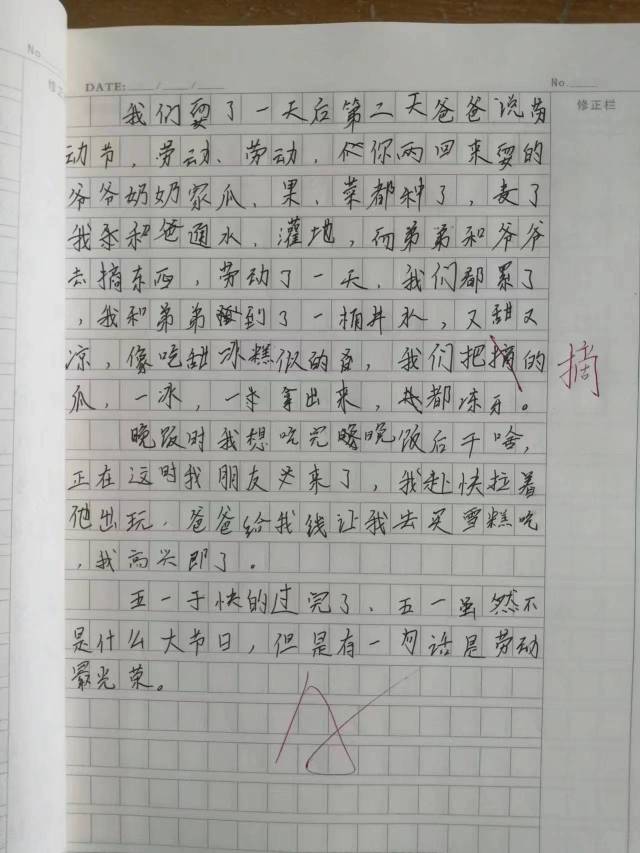 No
修正
DATE:
No.
修正栏
我们耍了一天后第二天爸爸说劳
动节,劳动、劳动,你两回来耍的
爷爷奶奶家瓜、果、菜都种了,麦了
我和爸通水、灌地,而弟弟和爷爷
去摘东西,劳动了一天,我们都累了
,我和弟弟到了一桶井水,又甜又
凉,像吃甜冰糕似的,我们把摘的
摘
瓜,一冰,一拿出来,都冻牙。
晚饭时我想吃完晚饭后干啥,
正在这时我朋友来了,我赶快拉着
他出玩,爸爸给我钱让我去买雪糕吃
,我高兴即了。
五一于快的过完了、五一虽然不
是什么大节日,但是有一句话是劳动
最光荣。
A